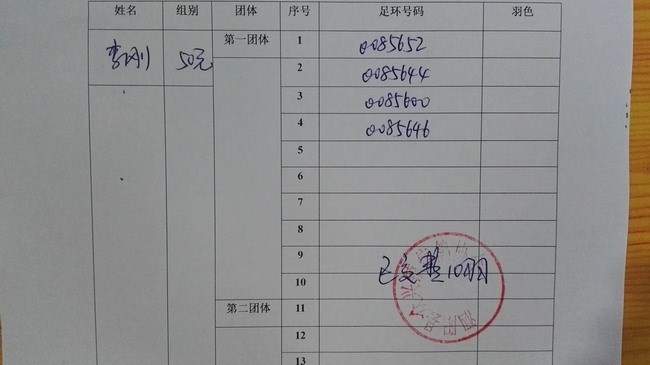 姓名 组别 团体 序号 足环号码 羽色
李刚 50元 第一团体 1 0085652
2 0085644
3 0085600
4 0085646
5
6
7
8
9
10
第二团体 11
12
13